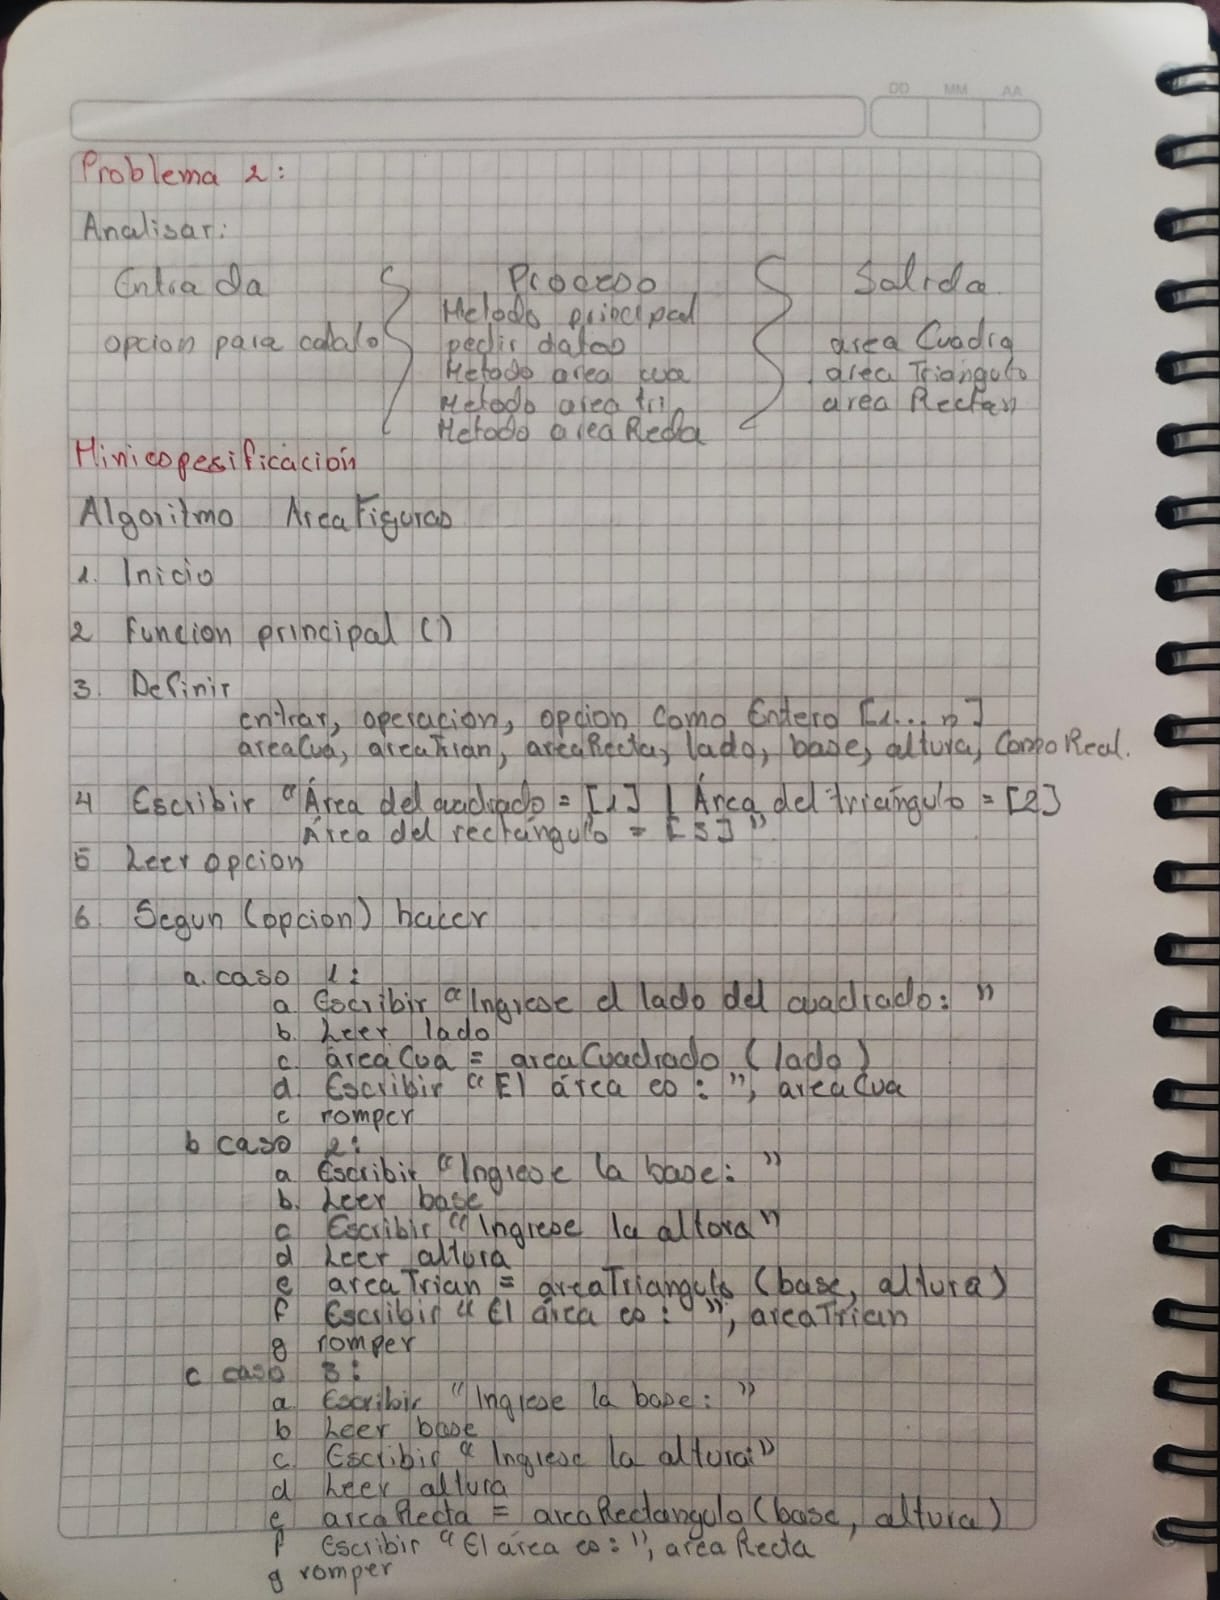 DD MM AA
Problema 2:
Analisar:
Entrada Proceso Salida
Metodo principal
opcion para calculo pedir datos area Cuadra
Metodo area cua area Triangulo
Metodo area tri area Rectan
Metodo area Recta
Minicopesificación
Algoritmo Area Figuras
1. Inicio
2 Funcion principal ()
3. Definir
entrar, operacion, opcion Como Entero [1... n]
areaCua, areaTrian, areaRecta, lado, base, altura, Como Real.
4 Escribir "Área del cuadrado = [1] | Área del triángulo = [2]
Área del rectángulo = [3]"
5 Leer opcion
6. Segun (opcion) hacer
a. caso 1:
a Escribir "Ingrese el lado del cuadrado: "
b. Leer lado
c. areaCua = areaCuadrado (lado)
d. Escribir "El área es: ", areaCua
e romper
b caso 2:
a Escribir "Ingrese la base: "
b. Leer base
c Escribir "Ingrese la altora"
d Leer altura
e areaTrian = areaTriangulo (base, altura)
f Escribir "El área es: ", areaTrian
g romper
c caso 3:
a Escribir "Ingrese la base: "
b Leer base
c. Escribir "Ingrese la altura:"
d Leer altura
e areaRecta = areaRectangulo (base, altura)
f Escribir "El área es:", areaRecta
g romper